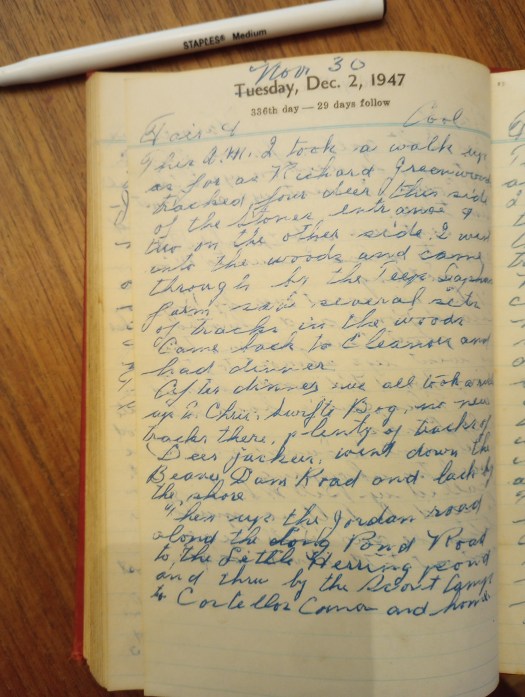 STAPLES® Medium
Nov 30
Tuesday, Dec. 2, 1947
336th day — 29 days follow
Fair & Cool
This A.M. I took a walk up
as far as Richard Greenwoods
tracked four deer this side
of the Stones, entrance &
two on the other side. I went
into the woods and came
through by the
farm saw several sets
of tracks in the woods
Came back to Eleanors and
had dinner
After dinner we all took a
up to Chris. Swifts Bog, no new
tracks there, plenty of tracks of
Deer jackers, went down the
Beaver Dam Road and back by
the shore
Then up the Jordan road
along the Long Pond Road
to the Little Herring pond
and thru by the Scout Camp
to Corner and home